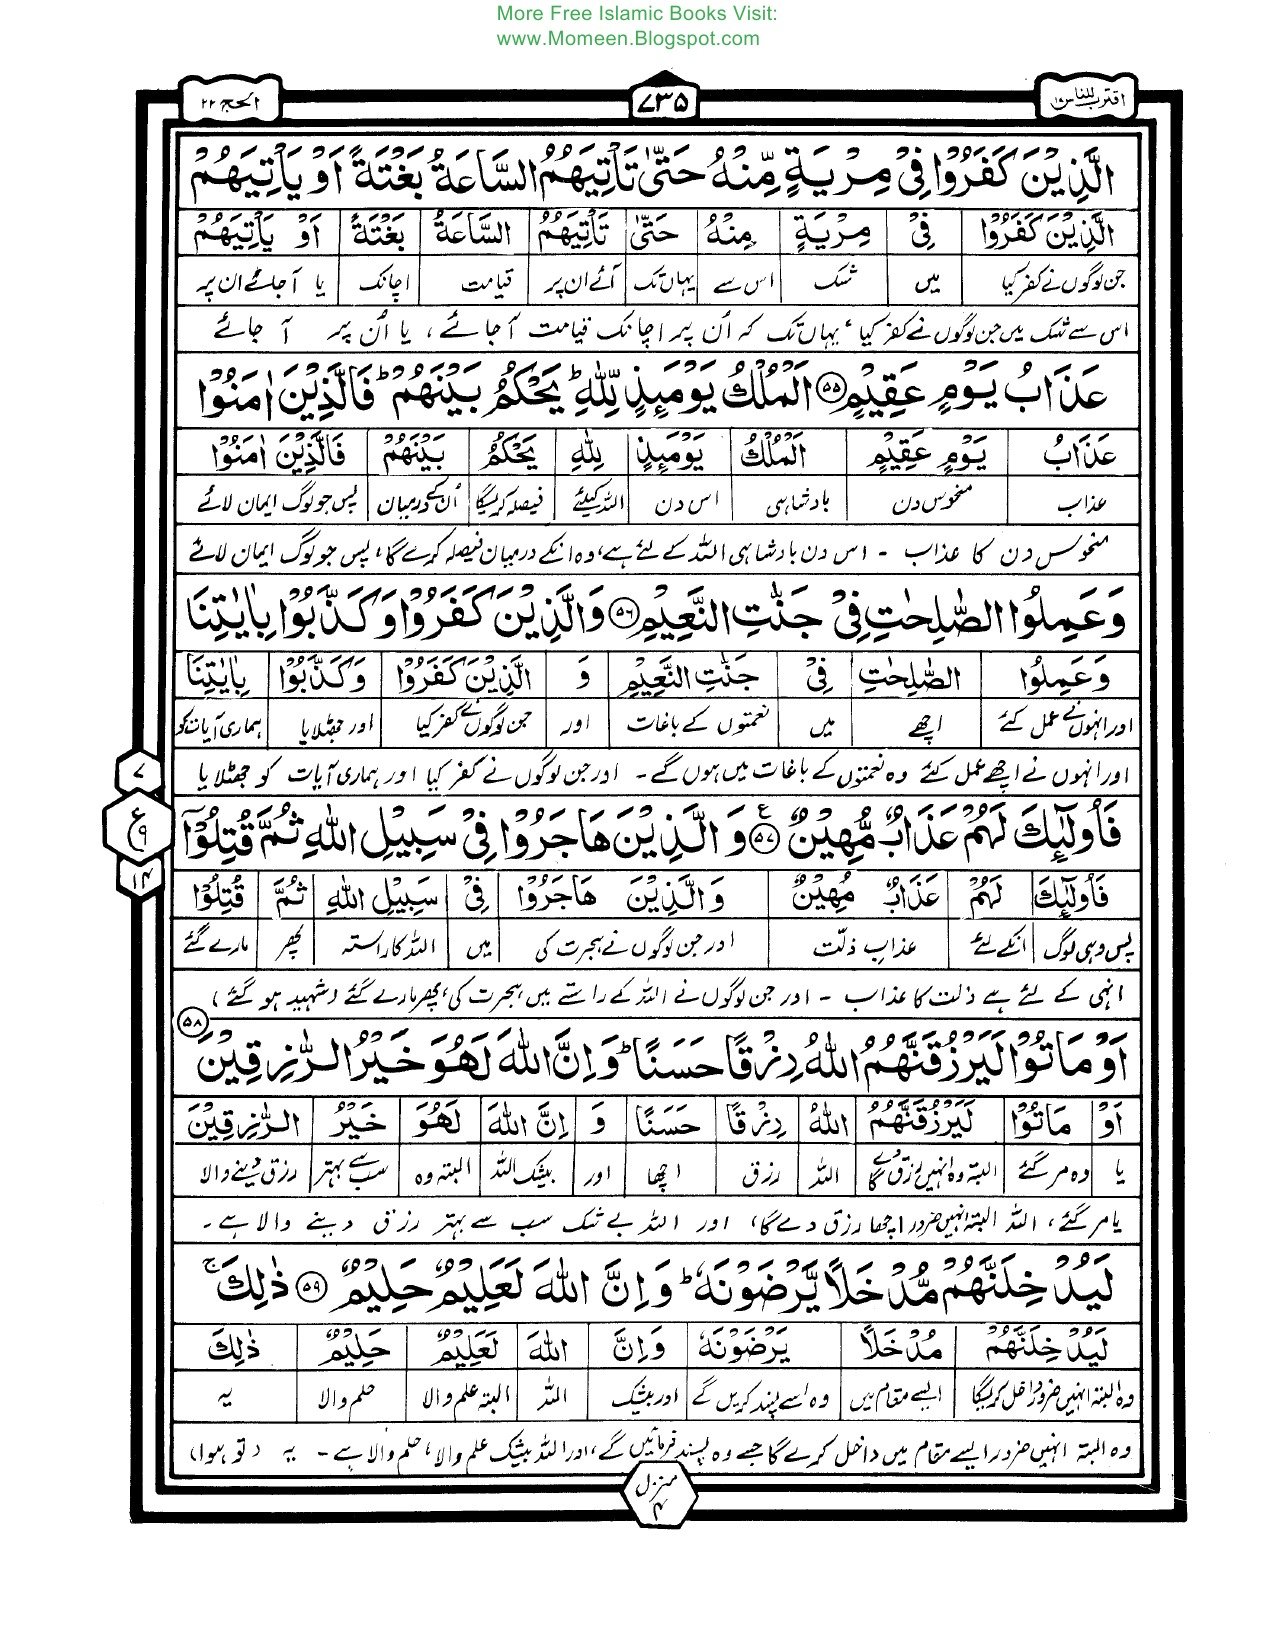 More Free Islamic Books Visit:
www.Momeen.Blogspot.com
اقترب للناس
۷۳۵
الحج ۲۲
الَّذِیْنَ كَفَرُوْا فِیْ مِرْیَةٍ مِّنْهُ حَتّٰى تَاْتِیَهُمُ السَّاعَةُ بَغْتَةً اَوْ یَاْتِیَهُمْ
الَّذِیْنَ كَفَرُوْا فِیْ مِرْیَةٍ مِنْهُ حَتّٰى تَاْتِیَهُمُ السَّاعَةُ بَغْتَةً اَوْ یَاْتِیَهُمْ
جن لوگوں نے کفر کیا میں شک اس سے یہاں تک آئے ان پر قیامت اچانک یا آجائے ان پر
اس سے شک میں جن لوگوں نے کفر کیا، یہاں تک کہ اُن پر اچانک قیامت آجائے، یا اُن پر آ جائے
عَذَابُ یَوْمٍ عَقِیْمٍ ۵۵ اَلْمُلْكُ یَوْمَىِٕذٍ لِّلّٰهِ ؕ یَحْكُمُ بَیْنَهُمْ ؕ فَالَّذِیْنَ اٰمَنُوْا
عَذَابُ یَوْمٍ عَقِیْمٍ اَلْمُلْكُ یَوْمَىِٕذٍ لِلّٰهِ یَحْكُمُ بَیْنَهُمْ فَالَّذِیْنَ اٰمَنُوْا
عذاب منحوس دن بادشاہی اس دن اللہ کیلئے فیصلہ کریگا اُن کے درمیان پس جو لوگ ایمان لائے
منحوس دن کا عذاب - اس دن بادشاہی اللہ کے لئے ہے، وہ انکے درمیان فیصلہ کرے گا، پس جو لوگ ایمان لائے
وَعَمِلُوا الصّٰلِحٰتِ فِیْ جَنّٰتِ النَّعِیْمِ ۵۶ وَالَّذِیْنَ كَفَرُوْا وَكَذَّبُوْا بِاٰیٰتِنَا
وَعَمِلُوْا الصّٰلِحٰتِ فِیْ جَنّٰتِ النَّعِیْمِ وَ الَّذِیْنَ كَفَرُوْا وَكَذَّبُوْا بِاٰیٰتِنَا
اور انہوں نے عمل کئے اچھے میں نعمتوں کے باغات اور جن لوگوں نے کفر کیا اور جھٹلایا ہماری آیات کو
اور انہوں نے اچھے عمل کئے وہ نعمتوں کے باغات میں ہوں گے - اور جن لوگوں نے کفر کیا اور ہماری آیات کو جھٹلایا
۷
ع
۹
۱۴
فَاُولٰٓىِٕكَ لَهُمْ عَذَابٌ مُّهِیْنٌ ۵۷ وَالَّذِیْنَ هَاجَرُوْا فِیْ سَبِیْلِ اللّٰهِ ثُمَّ قُتِلُوْۤا
فَاُولٰٓىِٕكَ لَهُمْ عَذَابٌ مُهِیْنٌ وَالَّذِیْنَ هَاجَرُوْا فِیْ سَبِیْلِ اللّٰهِ ثُمَّ قُتِلُوْا
پس وہی لوگ انکے لئے عذابِ ذلت اور جن لوگوں نے ہجرت کی میں اللہ کا راستہ پھر مارے گئے
انہی کے لئے ہے ذلت کا عذاب - اور جن لوگوں نے اللہ کے راستے میں ہجرت کی، پھر مارے گئے (شہید ہو گئے)
اَوْ مَاتُوْا لَیَرْزُقَنَّهُمُ اللّٰهُ رِزْقًا حَسَنًا ؕ وَاِنَّ اللّٰهَ لَهُوَ خَیْرُ الرّٰزِقِیْنَ ۵۸
اَوْ مَاتُوْا لَیَرْزُقَنَّهُمُ اللّٰهُ رِزْقًا حَسَنًا وَ اِنَّ اللّٰهَ لَهُوَ خَیْرُ الرّٰزِقِیْنَ
یا وہ مر گئے البتہ وہ انہیں رزق دے گا اللہ رزق اچھا اور بیشک اللہ البتہ وہ سب سے بہتر رزق دینے والا
یا مر گئے، اللہ البتہ انہیں ضرور اچھا رزق دے گا، اور اللہ بے شک سب سے بہتر رزق دینے والا ہے -
لَیُدْخِلَنَّهُمْ مُّدْخَلًا یَّرْضَوْنَهٗ ؕ وَاِنَّ اللّٰهَ لَعَلِیْمٌ حَلِیْمٌ ۵۹ ذٰلِكَ ۚ
لَیُدْخِلَنَّهُمْ مُدْخَلًا یَرْضَوْنَهٗ وَاِنَّ اللّٰهَ لَعَلِیْمٌ حَلِیْمٌ ذٰلِكَ
وہ البتہ انہیں ضرور داخل کریگا ایسے مقام میں وہ اسے پسند کریں گے اور بیشک اللہ البتہ علم والا حلم والا یہ
وہ البتہ انہیں ضرور ایسے مقام میں داخل کرے گا جسے وہ پسند فرمائیں گے، اور اللہ بیشک علم والا، حلم والا ہے - یہ (تو ہوا)
منزل
۴